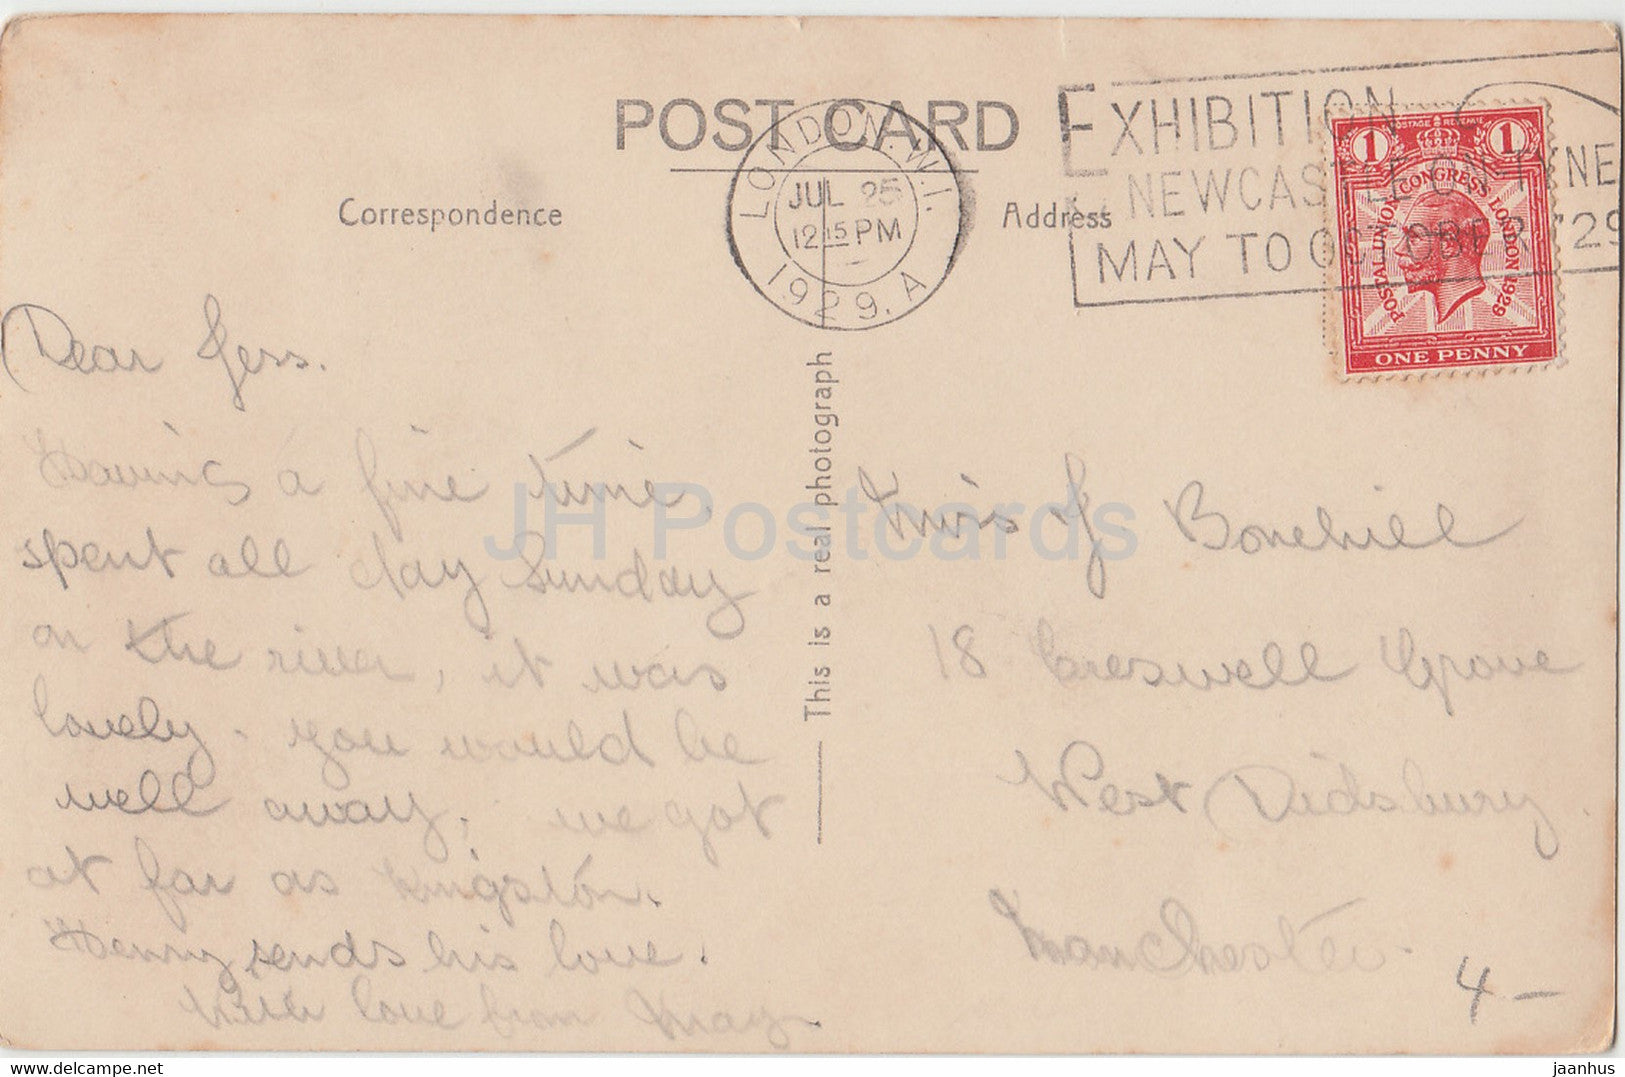 POST CARD
Correspondence
Address
LONDON. W.1.
JUL 25
12 15 PM
1929. A
EXHIBITION
NEWCASTLE ON TYNE
MAY TO OCTOBER '29
POSTAGE REVENUE
1 1
POSTAL UNION CONGRESS LONDON 1929
ONE PENNY
This is a real photograph
Dear Jess.
Having a fine time,
spent all day Sunday
on the river, it was
lovely. You would be
well away, we got
at far as Kingston.
Henny sends his love.
With love from May.
Miss J Bonehill
18 Creswell Grove
West Didsbury.
Manchester.
4 -
JH Postcards
jaanhus